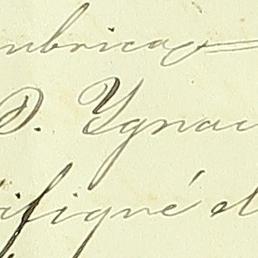 ubrica
D. Ygnac
ifiqué d